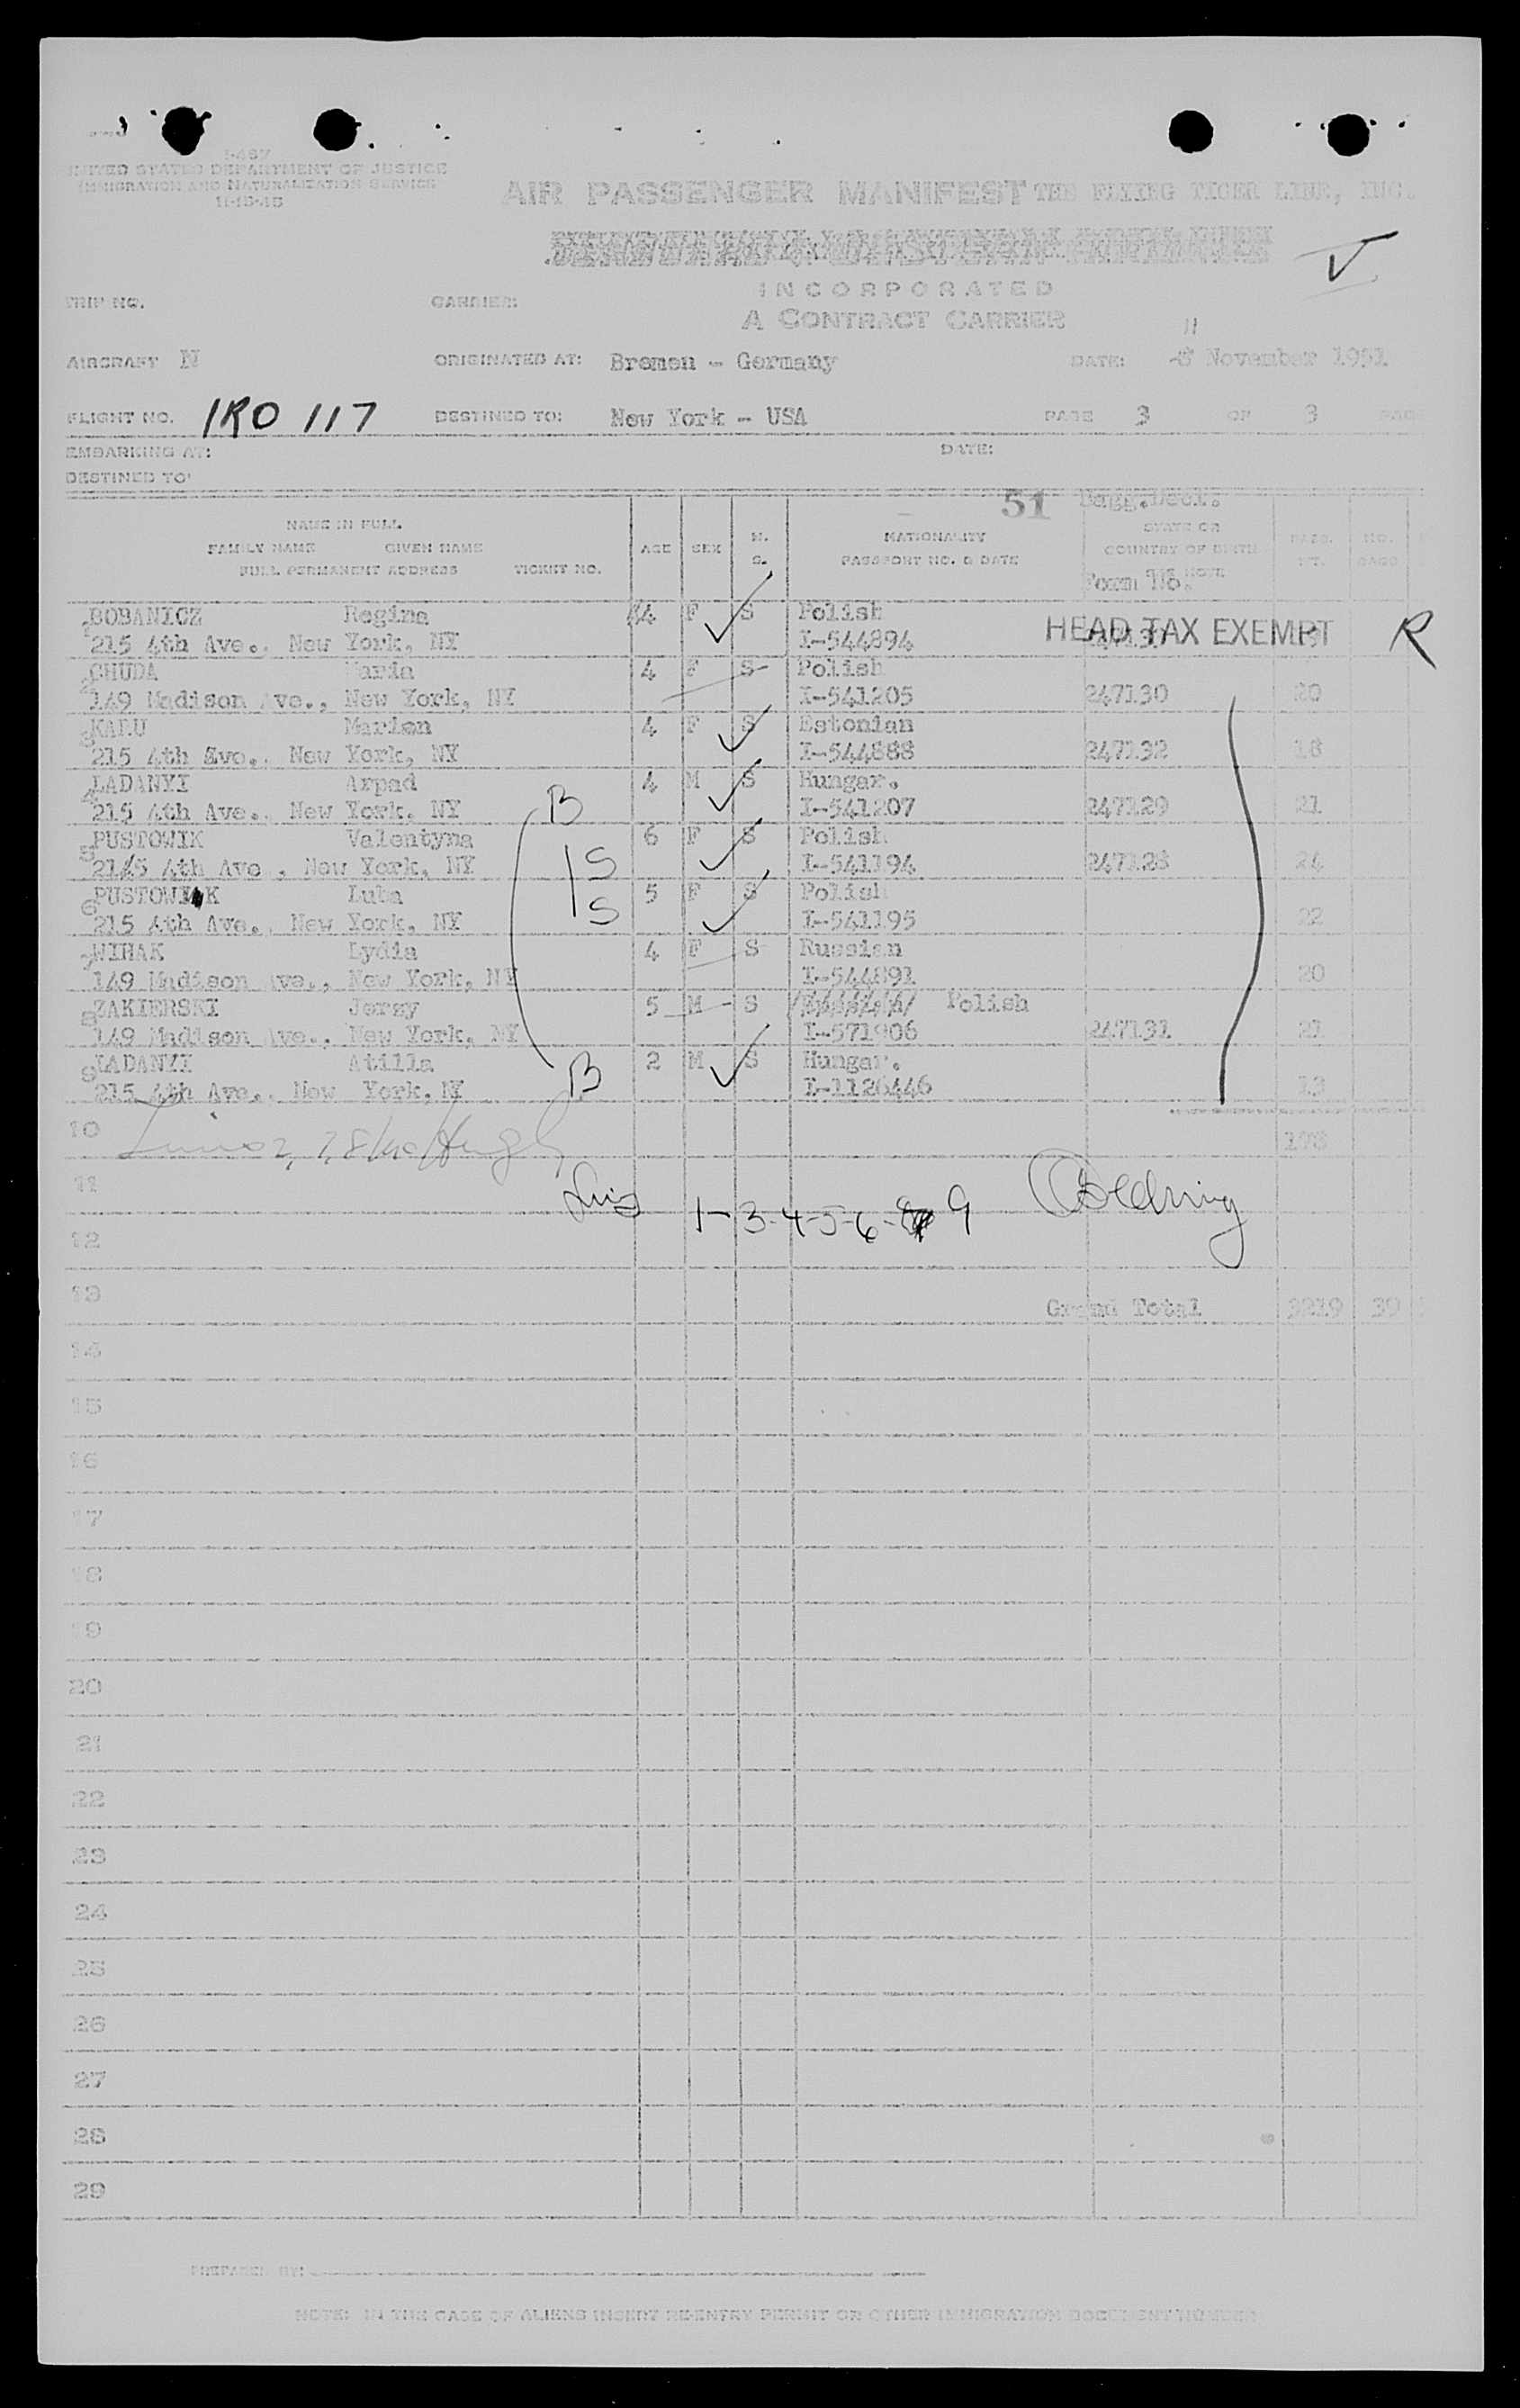 I-467
UNITED STATES DEPARTMENT OF JUSTICE
IMMIGRATION AND NATURALIZATION SERVICE
11-15-45
AIR PASSENGER MANIFEST THE FLYING TIGER LINE, INC.
V
INCORPORATED
TRIP NO. CARRIER:
A CONTRACT CARRIER
11
AIRCRAFT N ORIGINATED AT: Bremen - Germany DATE: November 1951
FLIGHT NO. IRO 117 DESTINED TO: New York - USA PAGE 3 OF 3
EMBARKING AT: DATE:
DESTINED TO:
51 Bagg.Decl.
NAME IN FULL
FAMILY NAME GIVEN NAME AGE SEX M. S. NATIONALITY STATE OR PASS. WT. NO. BAGG
FULL PERMANENT ADDRESS TICKET NO. PASSPORT NO. & DATE COUNTRY OF BIRTH
Form No.
1 BOBANICZ Regina 4 F S Polish
215 4th Ave., New York, NY I-544894 HEAD TAX EXEMPT R
2 CHUDA Maria 4 F S Polish
149 Madison Ave., New York, NY I-541205 247130 20
3 KARU Mariem 4 F S Estonian
215 4th Ave., New York, NY I-544888 247132 18
4 LADANYI Arpad 4 M S Hungar.
215 4th Ave., New York, NY B I-541207 247129 21
5 PUSTOWIK Valentyna 6 F S Polish
215 4th Ave., New York, NY S I-541194 247128 24
6 PUSTOWIK Luba 5 F S Polish
215 4th Ave., New York, NY S I-541195 22
7 WIHAK Lydia 4 F S Russian
149 Madison Ave., New York, NY I-544891 20
8 ZAKIERSKI Jerzy 5 M S Polish
149 Madison Ave., New York, NY I-571906 247131 21
9 LADANYI Atilla 2 M S Hungar.
215 4th Ave., New York, NY B I-1126446 13
10 178
11
1-3-4-5-6- 9 Goldring
12
13 Grand Total 3219 39
14
15
16
17
18
19
20
21
22
23
24
25
26
27
28
29
PREPARED BY:
NOTE: IN THE CASE OF ALIENS INSERT RE-ENTRY PERMIT OR OTHER IMMIGRATION DOCUMENT NUMBER